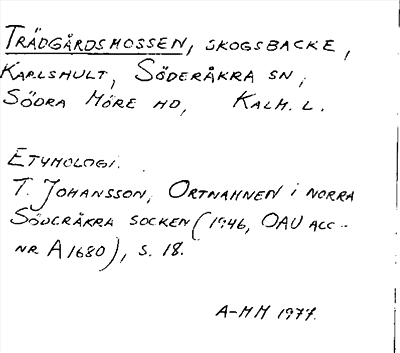 TRÄDGÅRDSMOSSEN, SKOGSBACKE,
KARLSHULT, SÖDERÅKRA SN,
SÖDRA MÖRE HD, KALM. L.
ETYMOLOGI.
T. JOHANSSON, ORTNAMNEN I NORRA
SÖDERÅKRA SOCKEN (1946, OAU ACC.-
NR A1680), S. 18.
A-MH 1977.